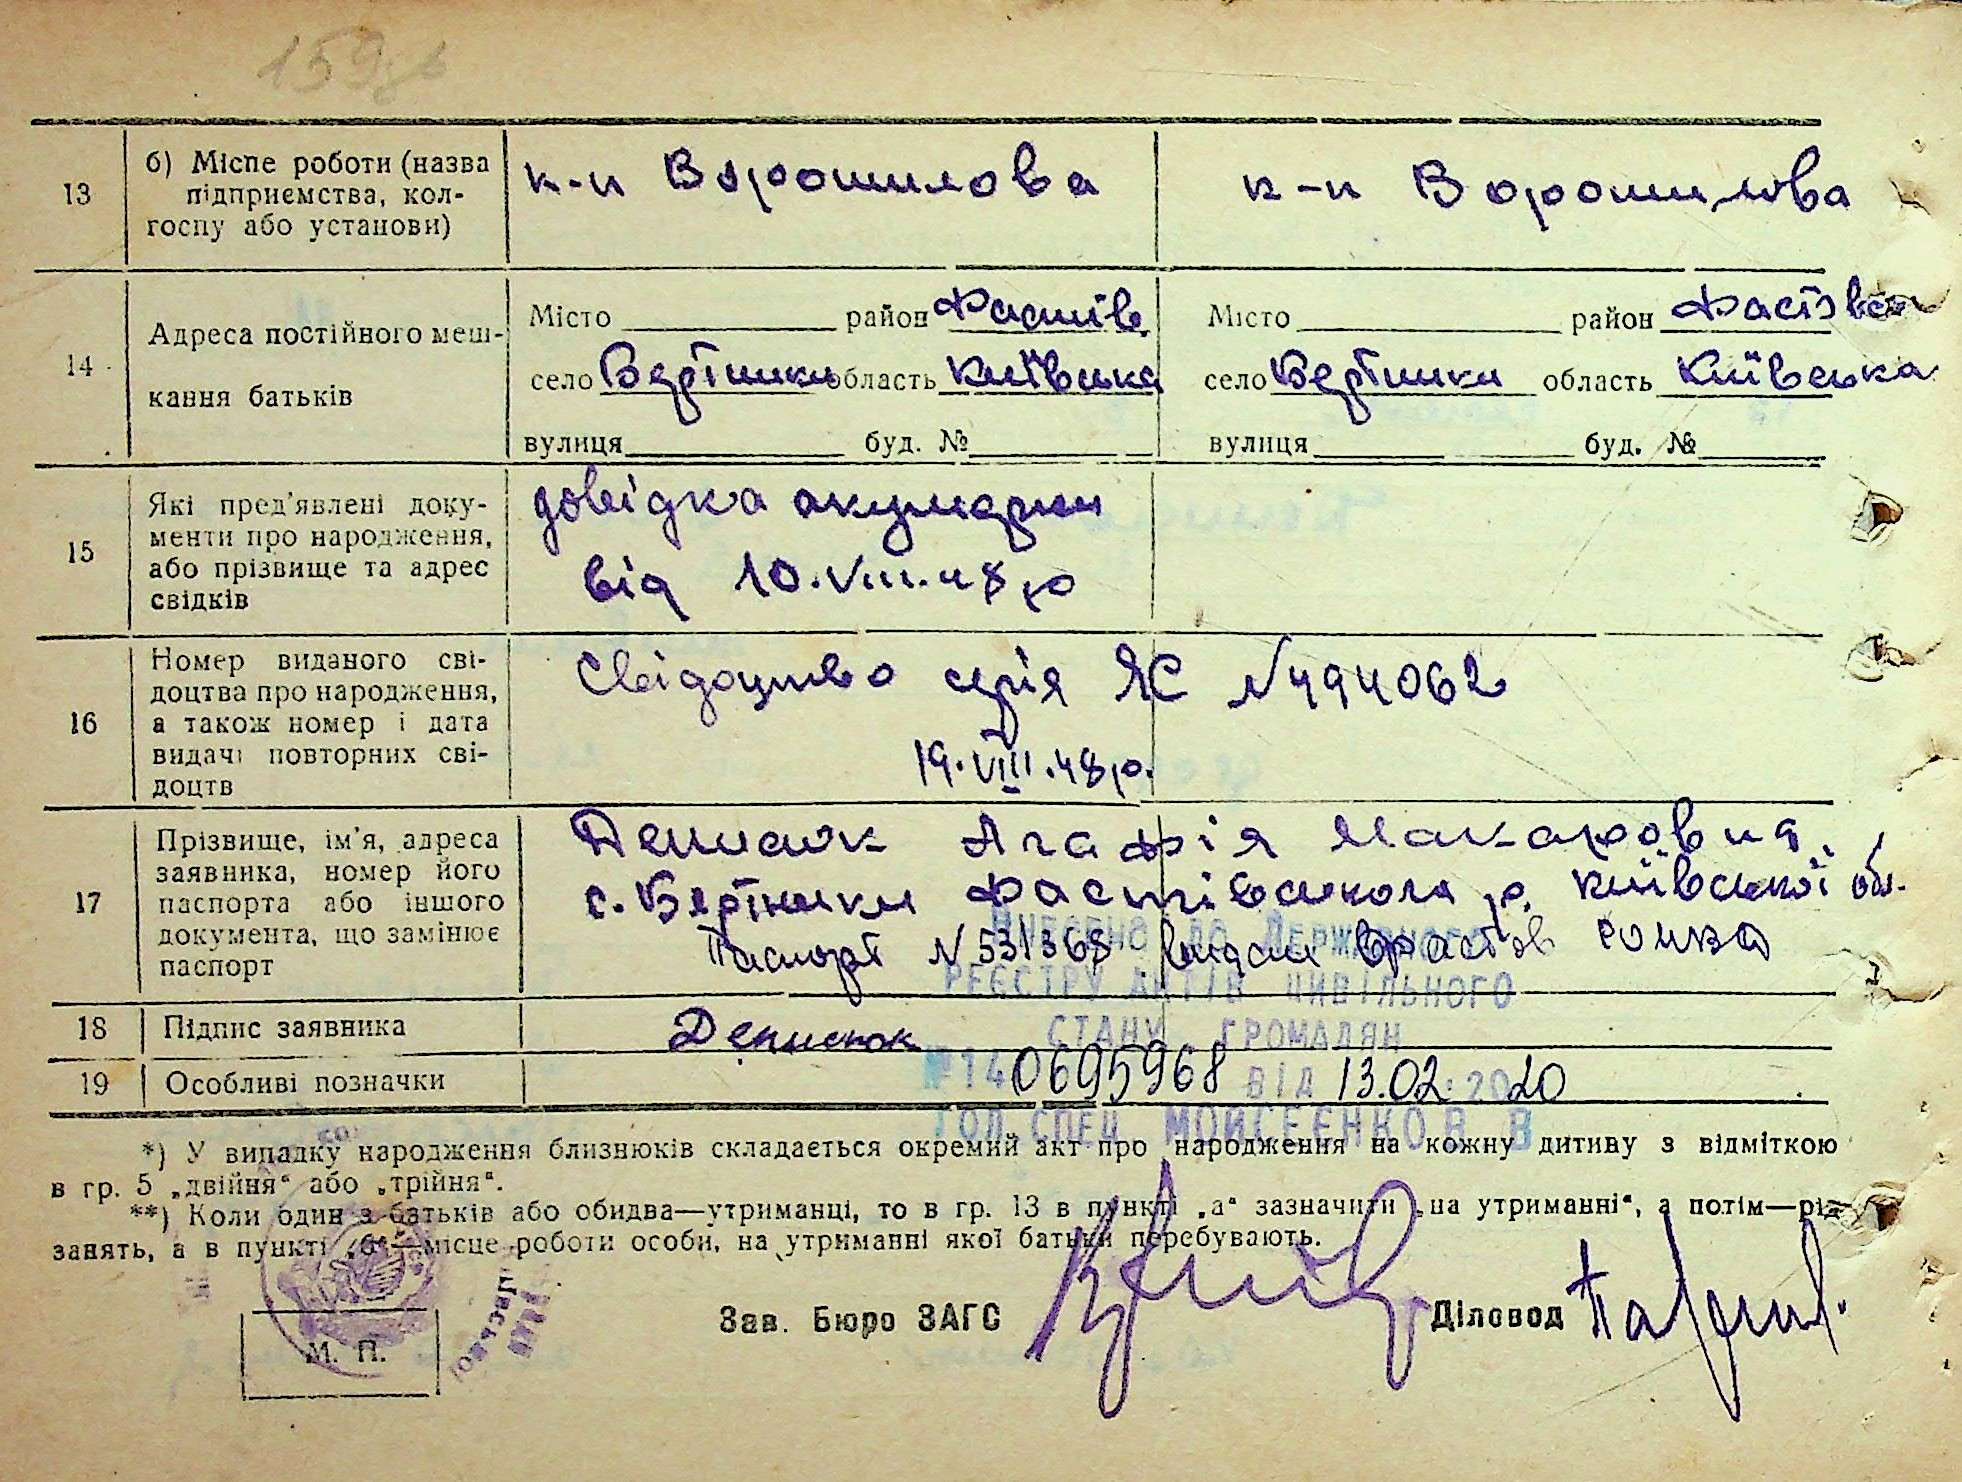 159
13
б) Місце роботи (назва
підприємства, кол-
госпу або установи)
к-п Ворошилова
к-п Ворошилова
14
Адреса постійного меш-
кання батьків
Місто район Фастів
село область Київська
вулиця буд. №
Місто район
село область Київська
вулиця буд. №
15
Які пред'явлені доку-
менти про народження,
або прізвище та адрес
свідків
довідка акушерки
від 10.VIII.48 р
16
Номер виданого сві-
доцтва про народження,
а також номер і дата
видачі повторних сві-
доцтв
Свідоцтво серія ЯС №494062
19.VIII.48р.
17
Прізвище, ім'я, адреса
заявника, номер його
паспорта або іншого
документа, що замінює
паспорт
Денисюк Агафія Макаровна,
с. Фастівського р. Київської обл.
Паспорт № 531368 видан
ВНЕСЕНО ДО ДЕРЖАВНОГО
РЕЄСТРУ АКТІВ ЦИВІЛЬНОГО
СТАНУ ГРОМАДЯН
18
Підпис заявника
Денисюк
19
Особливі позначки
№ 140695968 ВІД 13.02.2020
ГОЛ СПЕЦ МОЙСЕЄНКО В В
*) У випадку народження близнюків складається окремий акт про народження на кожну дитину з відміткою
в гр. 5 „двійня“ або „трійня“.
**) Коли один з батьків або обидва—утриманці, то в гр. 13 в пункті „а“ зазначити „на утриманні“, а потім—рід
занять, а в пункті „б“—місце роботи особи, на утриманні якої батьки перебувають.
М. П.
Зав. Бюро ЗАГС
Діловод